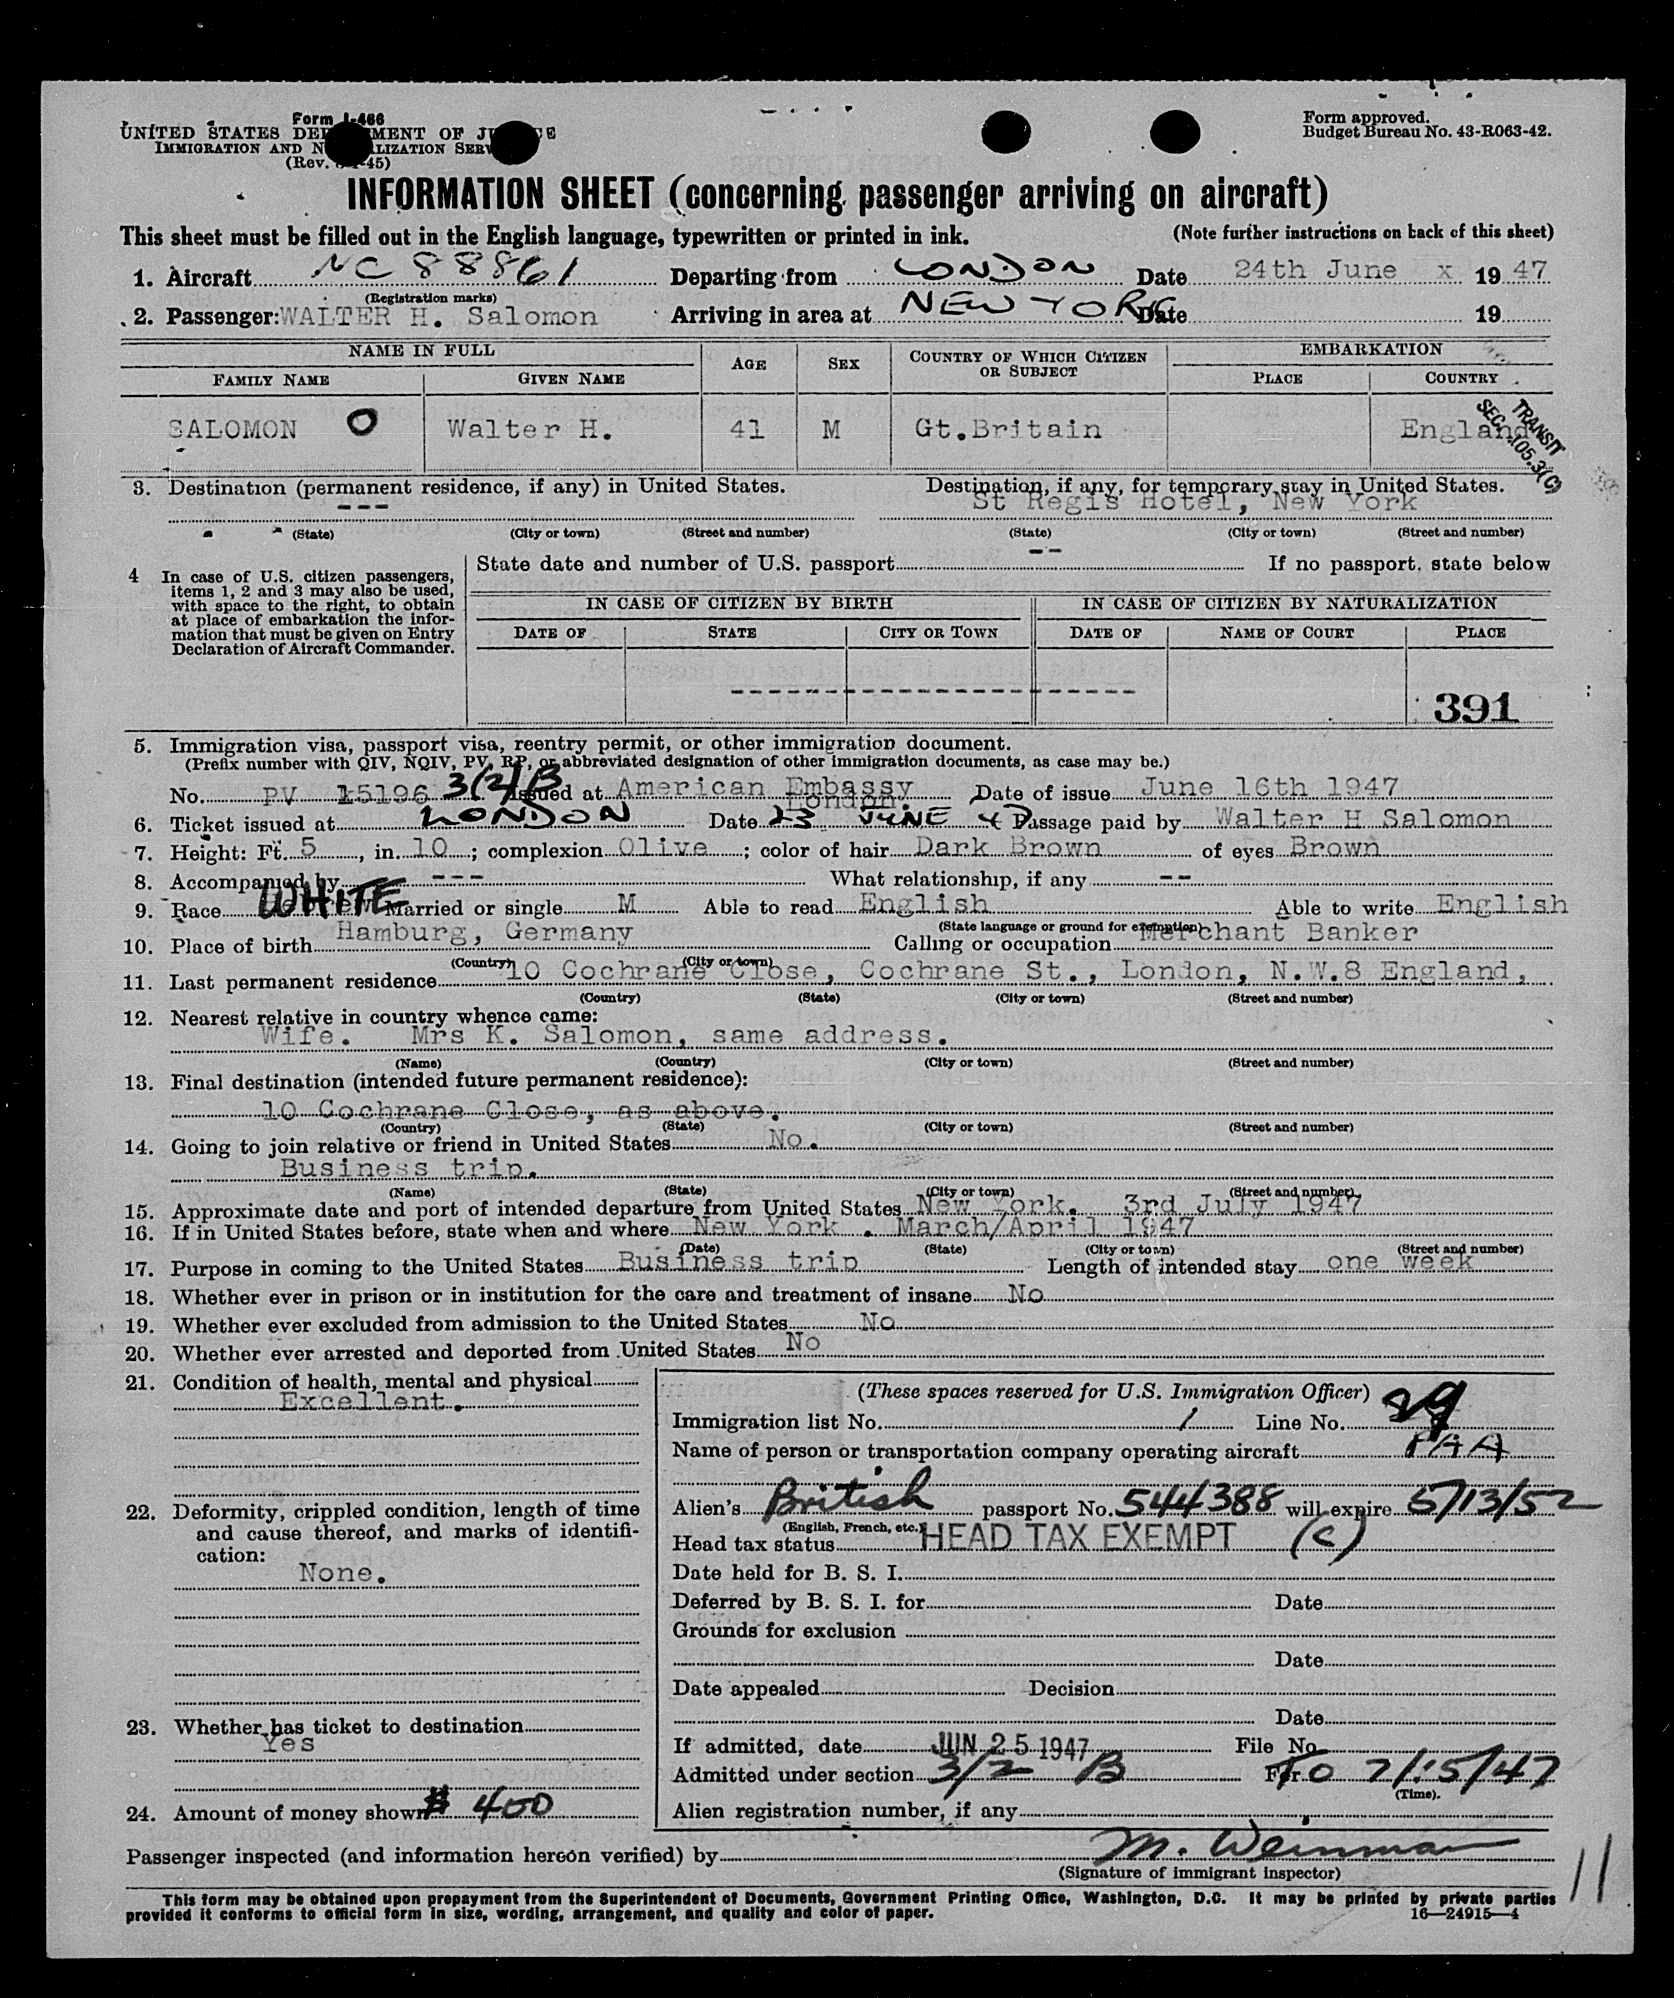 Form I-466
UNITED STATES DEPARTMENT OF JUSTICE
IMMIGRATION AND NATURALIZATION SERVICE
(Rev. 45)
Form approved.
Budget Bureau No. 43-R063-42.
INFORMATION SHEET (concerning passenger arriving on aircraft)
This sheet must be filled out in the English language, typewritten or printed in ink.
(Note further instructions on back of this sheet)
1. Aircraft NC 88861 Departing from LONDON Date 24th June x 1947
(Registration marks)
2. Passenger: WALTER H. Salomon Arriving in area at NEW YORK Date 19
NAME IN FULL AGE SEX COUNTRY OF WHICH CITIZEN OR SUBJECT EMBARKATION
FAMILY NAME GIVEN NAME PLACE COUNTRY
SALOMON O Walter H. 41 M Gt.Britain England
TRANSIT
SEC. 105.3(C)
3. Destination (permanent residence, if any) in United States. Destination, if any, for temporary stay in United States.
--- St Regis Hotel, New York
(State) (City or town) (Street and number) (State) (City or town) (Street and number)
4 In case of U.S. citizen passengers, items 1, 2 and 3 may also be used, with space to the right, to obtain at place of embarkation the information that must be given on Entry Declaration of Aircraft Commander.
State date and number of U.S. passport -- If no passport, state below
IN CASE OF CITIZEN BY BIRTH IN CASE OF CITIZEN BY NATURALIZATION
DATE OF STATE CITY OR TOWN DATE OF NAME OF COURT PLACE
----------------------
391
5. Immigration visa, passport visa, reentry permit, or other immigration document.
(Prefix number with QIV, NQIV, PV, RP, or abbreviated designation of other immigration documents, as case may be.)
No. PV 15196 3(2)B Issued at American Embassy London. Date of issue June 16th 1947
6. Ticket issued at LONDON Date 23 JUNE 47 Passage paid by Walter H Salomon
7. Height: Ft. 5, in. 10; complexion Olive; color of hair Dark Brown of eyes Brown
8. Accompanied by --- What relationship, if any --
9. Race WHITE Married or single M Able to read English Able to write English
(State language or ground for exemption)
10. Place of birth Hamburg, Germany Calling or occupation Merchant Banker
(Country) (City or town)
11. Last permanent residence 10 Cochrane Close, Cochrane St., London, N.W.8 England,
(Country) (State) (City or town) (Street and number)
12. Nearest relative in country whence came:
Wife. Mrs K. Salomon, same address.
(Name) (Country) (City or town) (Street and number)
13. Final destination (intended future permanent residence):
10 Cochrane Close, as above.
(Country) (State) (City or town) (Street and number)
14. Going to join relative or friend in United States No.
Business trip.
(Name) (State) (City or town) (Street and number)
15. Approximate date and port of intended departure from United States New York. 3rd July 1947
16. If in United States before, state when and where New York. March/April 1947
(Date) (State) (City or town) (Street and number)
17. Purpose in coming to the United States Business trip Length of intended stay one week
18. Whether ever in prison or in institution for the care and treatment of insane No
19. Whether ever excluded from admission to the United States No
20. Whether ever arrested and deported from United States No
21. Condition of health, mental and physical
Excellent.
22. Deformity, crippled condition, length of time and cause thereof, and marks of identification:
None.
23. Whether has ticket to destination
Yes
24. Amount of money shown $ 400
(These spaces reserved for U.S. Immigration Officer)
Immigration list No. 1 Line No. 29
Name of person or transportation company operating aircraft PAA
Alien's British passport No. 544388 will expire 5/13/52
(English, French, etc.)
Head tax status HEAD TAX EXEMPT (c)
Date held for B. S. I.
Deferred by B. S. I. for Date
Grounds for exclusion
Date
Date appealed Decision
Date
If admitted, date JUN 25 1947 File No.
Admitted under section 3/2 B For TO 7/15/47
(Time).
Alien registration number, if any
Passenger inspected (and information hereon verified) by M. Weinman
(Signature of immigrant inspector)
11
This form may be obtained upon prepayment from the Superintendent of Documents, Government Printing Office, Washington, D.C. It may be printed by private parties
provided it conforms to official form in size, wording, arrangement, and quality and color of paper.
16—24915—4